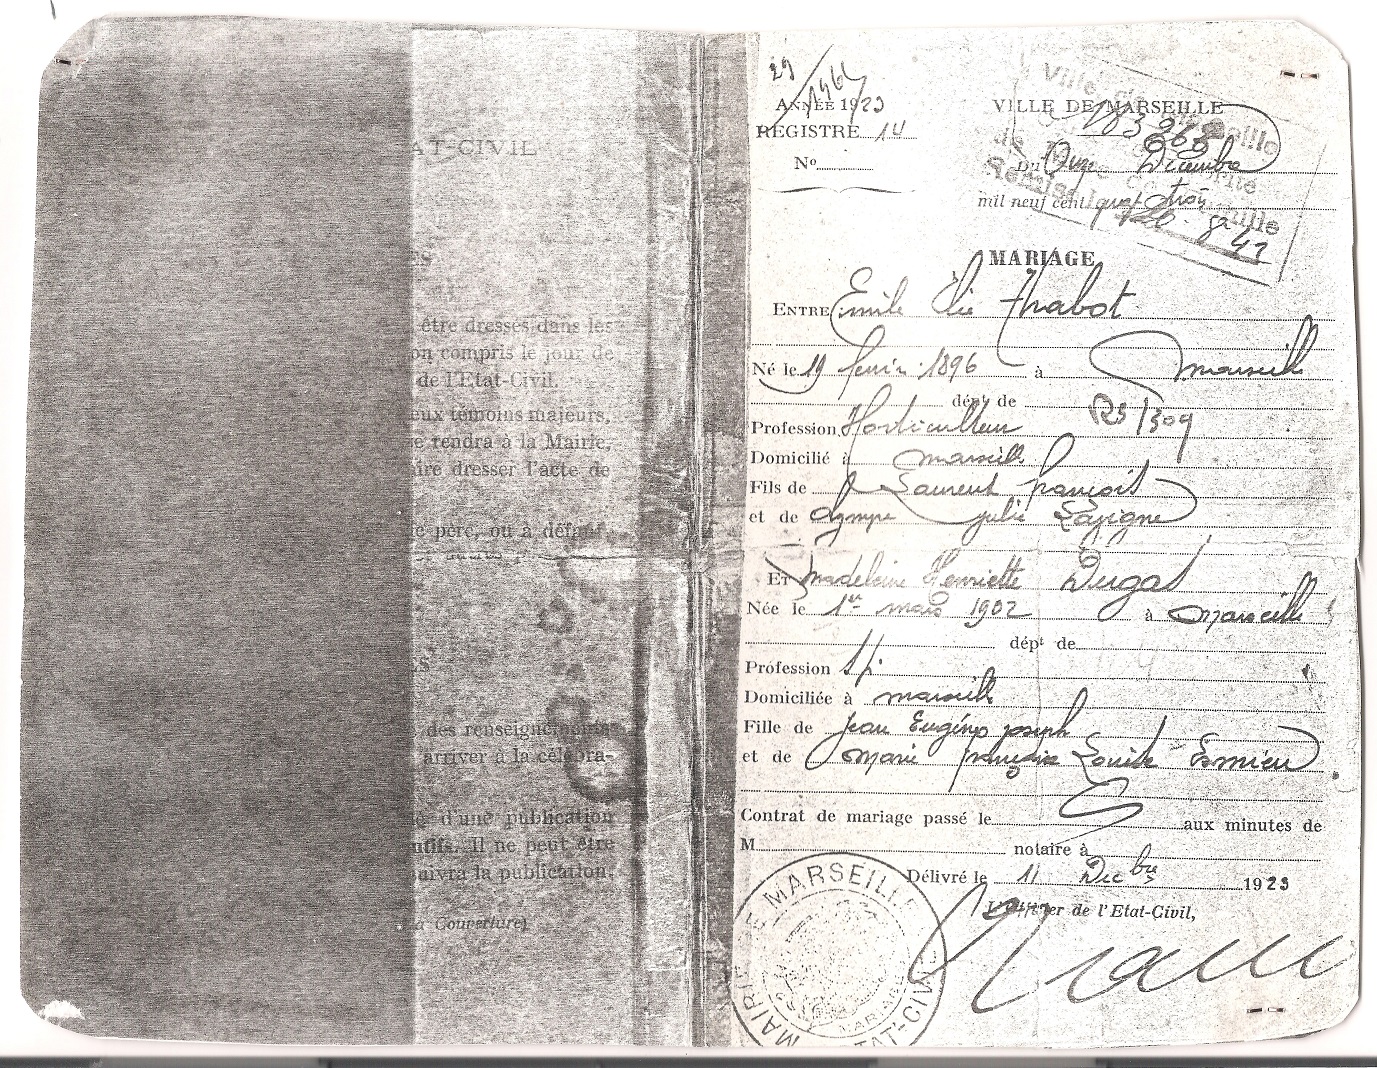 AT-CIVIL
ES
être dressés dans les
on compris le jour de
de l'Etat-Civil.
eux témoins majeurs,
e rendra à la Mairie,
ire dresser l'acte de
e père, ou à défaut
des renseignements
arriver à la célébra-
d'une publication
utifs. Il ne peut être
uivra la publication.
la Couverture)
29
1964
ANNÉE 1923
REGISTRE 14
No
VILLE DE MARSEILLE
Du Onze Décembre
mil neuf cent trois
Ville de Marseille
42
MARIAGE
ENTRE Emile Elie Thabot
Né le 19 fevrier 1896 à Marseille
dépt de R5/309
Profession Horticulteur
Domicilié à Marseille
Fils de Laurent François
et de Olympe Julie Lavigne
ET Madeleine Henriette Dugat
Née le 1er mars 1902 à Marseille
dépt de
Profession S.p.
Domiciliée à Marseille
Fille de Jean Eugène Joseph
et de Marie Françoise Louise Esmieu
Contrat de mariage passé le aux minutes de
M notaire à
Délivré le 11 Decbre 1923
L'Officier de l'Etat-Civil,
MAIRIE DE MARSEILLE
MARIAGE
ETAT-CIVIL